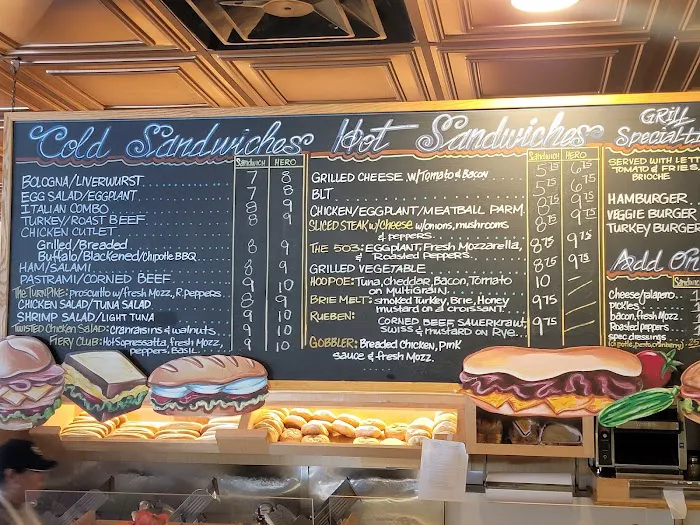 Cold Sandwiches
SANDWICH HERO
BOLOGNA/LIVERWURST 7 8
EGG SALAD/EGGPLANT 7 8
ITALIAN COMBO 8 9
TURKEY/ROAST BEEF 8 9
CHICKEN CUTLET
Grilled/Breaded 8 9
Buffalo/Blackened/Chipotle BBQ
HAM/SALAMI 8 9
PASTRAMI/CORNED BEEF 9 10
THE TURNPIKE: prosciutto w/fresh Mozz, R.peppers
CHICKEN SALAD/TUNA SALAD
SHRIMP SALAD/LIGHT TUNA
TWISTED CHICKEN SALAD: cranraisins & walnuts
FIERY CLUB: Hot Sopressatta, fresh Mozz,
peppers, Basil
Hot Sandwiches
SANDWICH HERO
GRILLED CHEESE w/Tomato & Bacon
BLT
CHICKEN/EGGPLANT/MEATBALL PARM
SLICED STEAK w/cheese w/onions, mushrooms
& peppers
THE 503: EGGPLANT, Fresh Mozzarella,
& Roasted Peppers
GRILLED VEGETABLE
HOOPOE: Tuna, Cheddar, Bacon, Tomato
on MultiGrain
BRIE MELT: smoked Turkey, Brie, Honey
mustard on a croissant
RUEBEN: CORNED BEEF, SAUERKRAUT,
SWISS & mustard on Rye
GOBBLER: Breaded Chicken, Pink
sauce & fresh Mozz.
GRILL
Special
SERVED WITH LET
TOMATO & FRIES,
BRIOCHE
HAMBURGER
VEGGIE BURGER
TURKEY BURGER
Add On
SANDWICH
Cheese/jalapeno
PICKLES
bacon, fresh Mozz
Roasted peppers
spec dressings